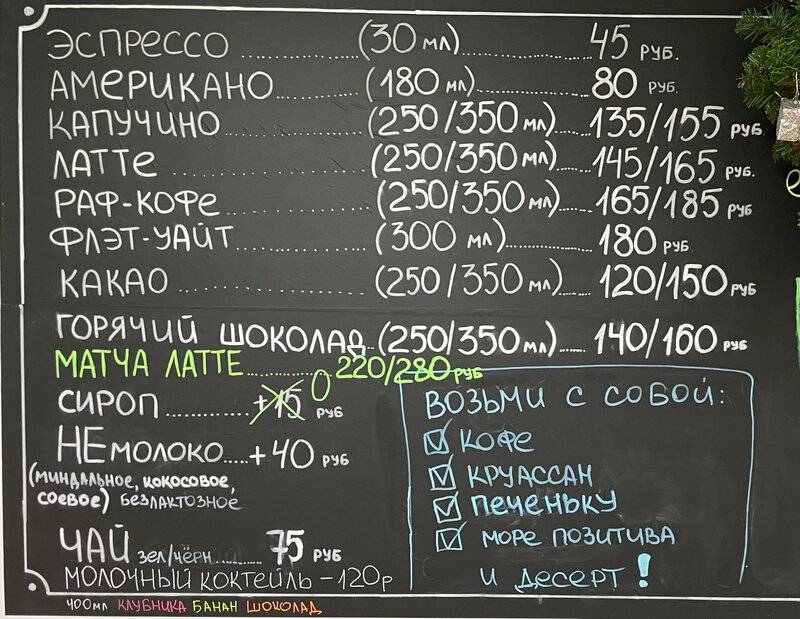 ЭСПРЕССО ............ (30 МЛ) ............ 45 РУБ.
АМЕРИКАНО ............ (180 МЛ) ............ 80 РУБ.
КАПУЧИНО ............ (250/350 МЛ) ...... 135/155 РУБ.
ЛАТТЕ ............ (250/350 МЛ) ...... 145/165 РУБ.
РАФ-КОФЕ ............ (250/350 МЛ) ...... 165/185 РУБ
ФЛЭТ-УАЙТ ............ (300 МЛ) ............ 180 РУБ.
КАКАО ............ (250/350 МЛ) ...... 120/150 РУБ
ГОРЯЧИЙ ШОКОЛАД .. (250/350 МЛ) ...... 140/160 РУБ
МАТЧА ЛАТТЕ ............ 220/280 РУБ
СИРОП ............ +15 0 РУБ
НЕМОЛОКО ..... +40 РУБ
(МИНДАЛЬНОЕ, КОКОСОВОЕ,
СОЕВОЕ) БЕЗЛАКТОЗНОЕ
ЧАЙ ЗЕЛ/ЧЁРН ............ 75 РУБ
МОЛОЧНЫЙ КОКТЕЙЛЬ – 120р
400МЛ КЛУБНИКА БАНАН ШОКОЛАД
ВОЗЬМИ С СОБОЙ:
☑ КОФЕ
☑ КРУАССАН
☑ ПЕЧЕНЬКУ
☑ МОРЕ ПОЗИТИВА
И ДЕСЕРТ!